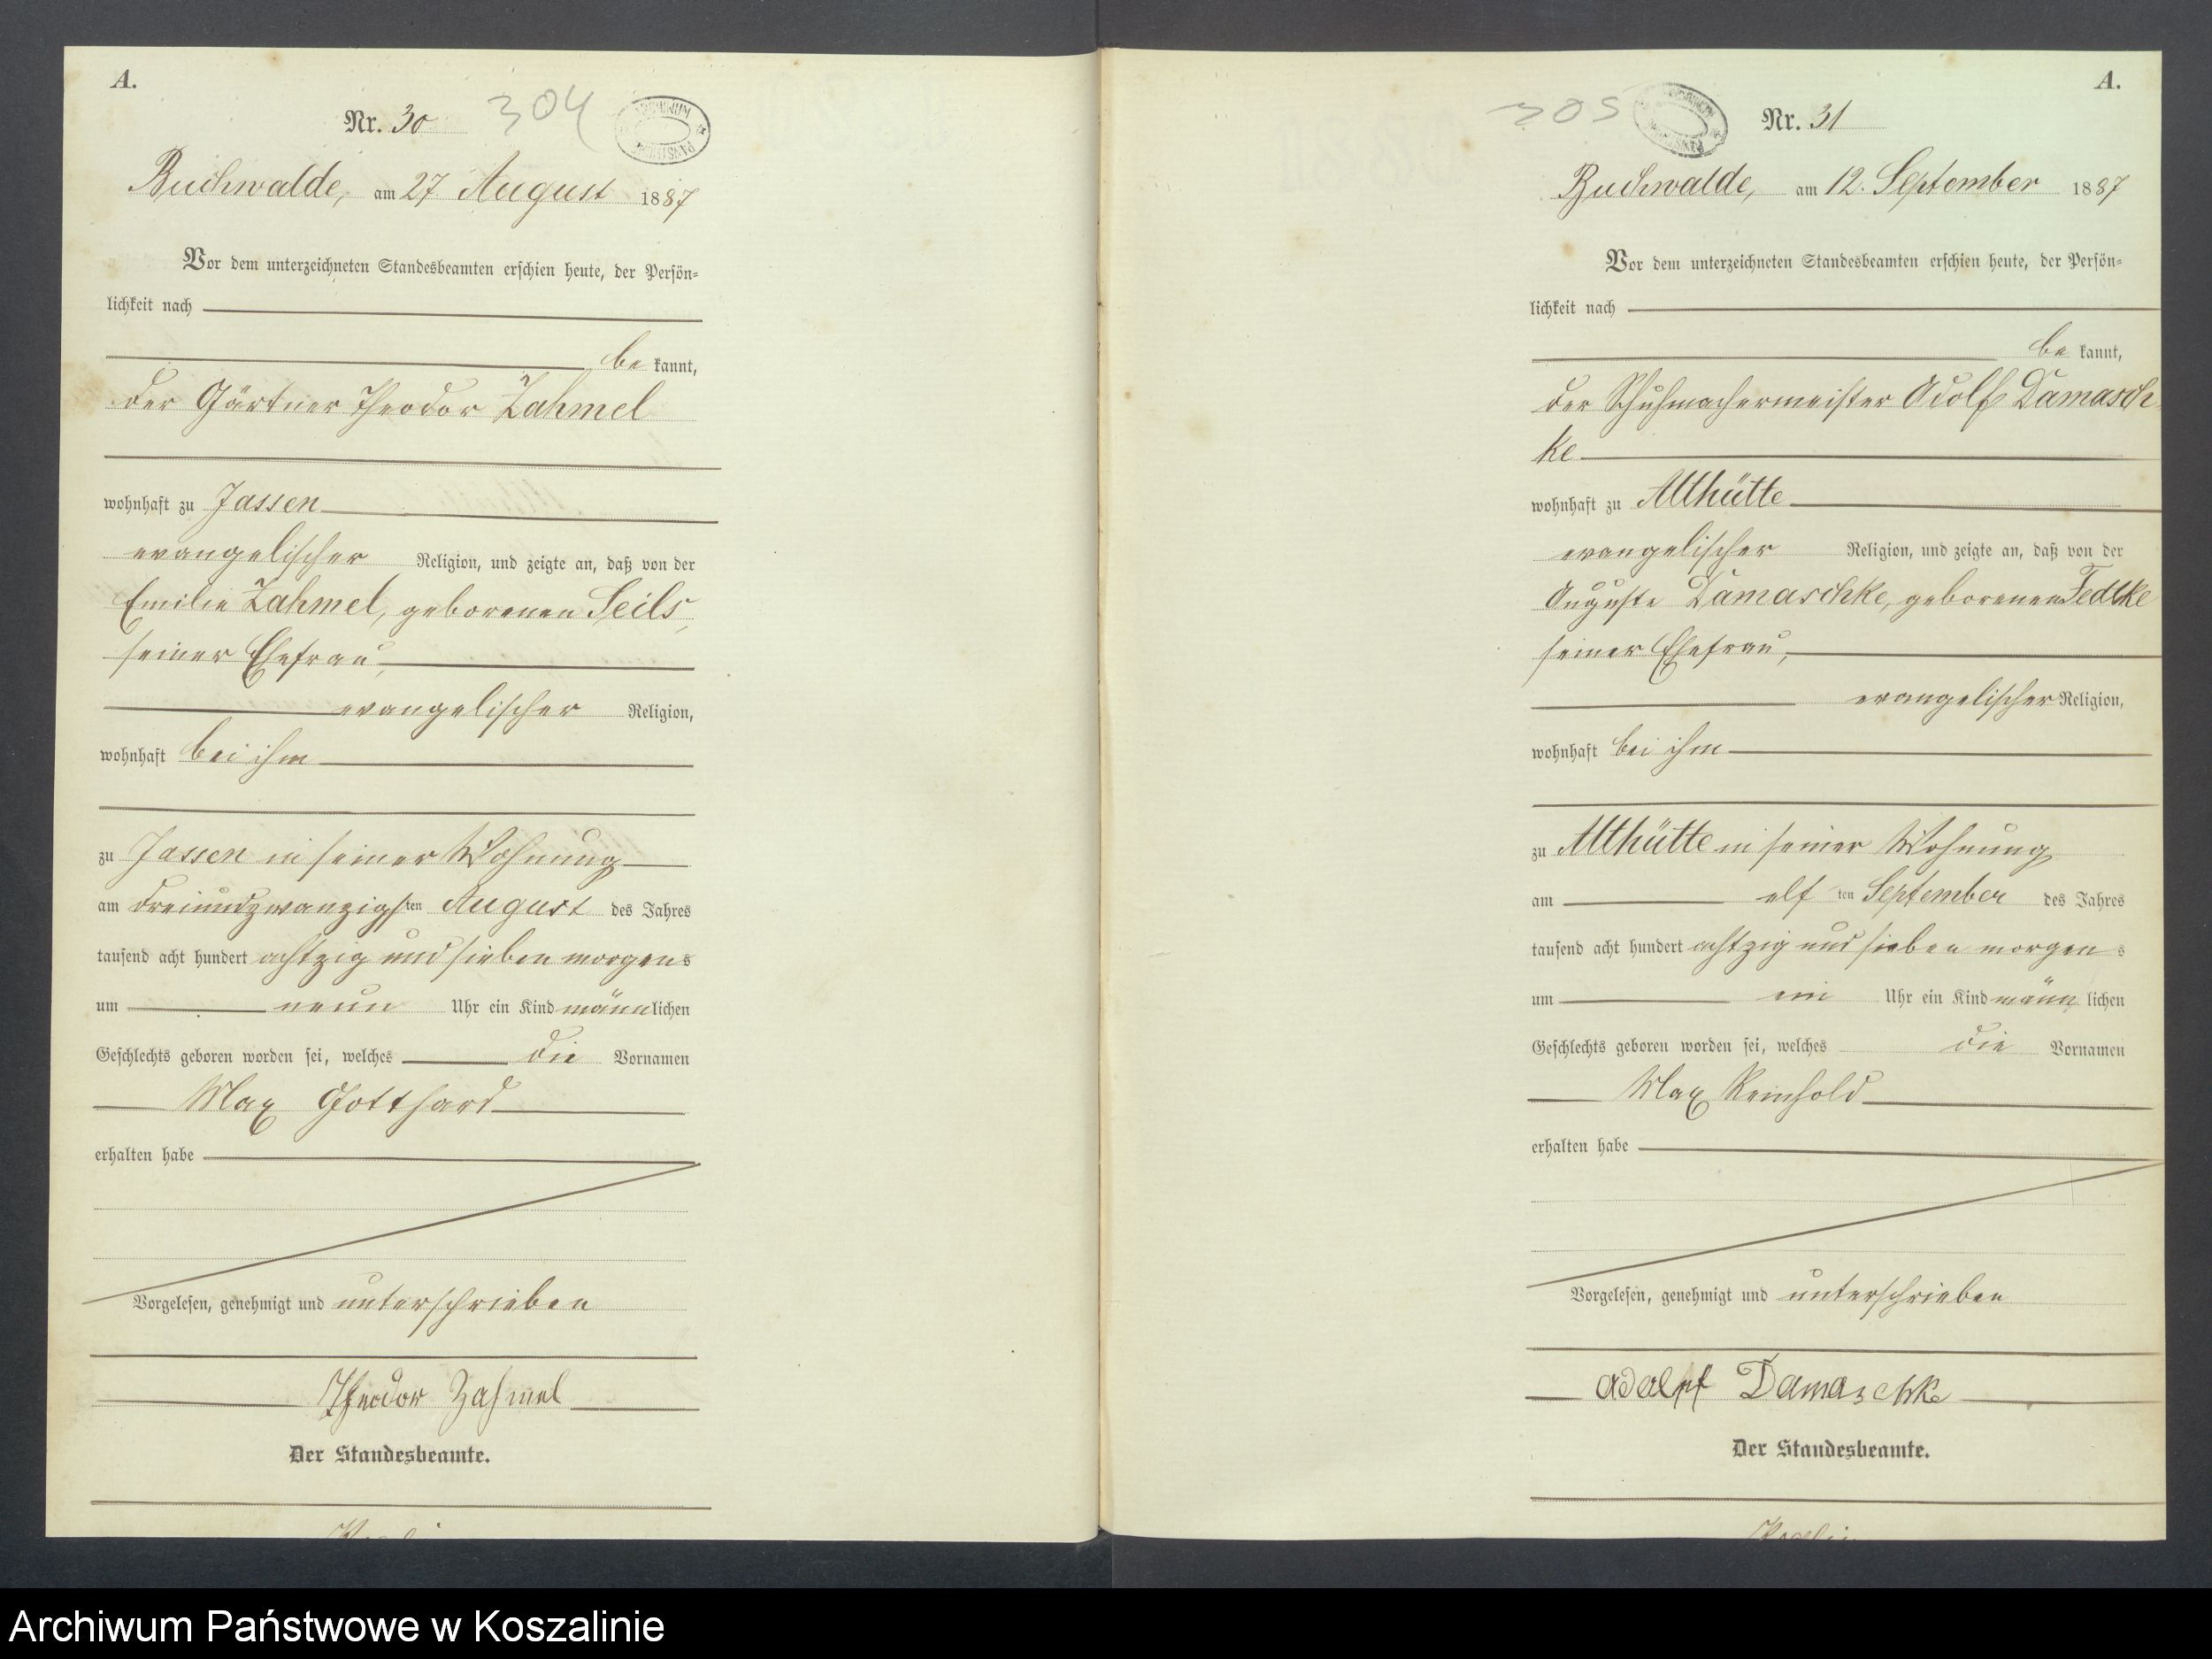 A.
Nr. 30 304
ARCHIWUM PAŃSTWOWE
Buchwalde, am 27. August 1887
Vor dem unterzeichneten Standesbeamten erschien heute, der Persön-
lichkeit nach
be kannt,
der Gärtner Theodor Zahmel
wohnhaft zu Jassen
evangelischer Religion, und zeigte an, daß von der
Emilie Zahmel, geborenen Seils,
seiner Ehefrau,
evangelischer Religion,
wohnhaft bei ihm
zu Jassen in seiner Wohnung
am dreiundzwanzigsten August des Jahres
tausend acht hundert achtzig und sieben morgens
um neun Uhr ein Kind männlichen
Geschlechts geboren worden sei, welches die Vornamen
Max Gotthard
erhalten habe
Vorgelesen, genehmigt und unterschrieben
Theodor Zahmel
Der Standesbeamte.
A.
305 Nr. 31
Buchwalde, am 12. September 1887
Vor dem unterzeichneten Standesbeamten erschien heute, der Persön-
lichkeit nach
be kannt,
der Schuhmachermeister Adolf Damasch-
ke
wohnhaft zu Althütte
evangelischer Religion, und zeigte an, daß von der
Auguste Damaschke, geborenen
seiner Ehefrau,
evangelischer Religion,
wohnhaft bei ihm
zu Althütte in seiner Wohnung
am elf ten September des Jahres
tausend acht hundert achtzig und sieben morgens
um ein Uhr ein Kind männlichen
Geschlechts geboren worden sei, welches die Vornamen
Max Reinhold
erhalten habe
Vorgelesen, genehmigt und unterschrieben
Adolf Damaschke
Der Standesbeamte.
Archiwum Państwowe w Koszalinie